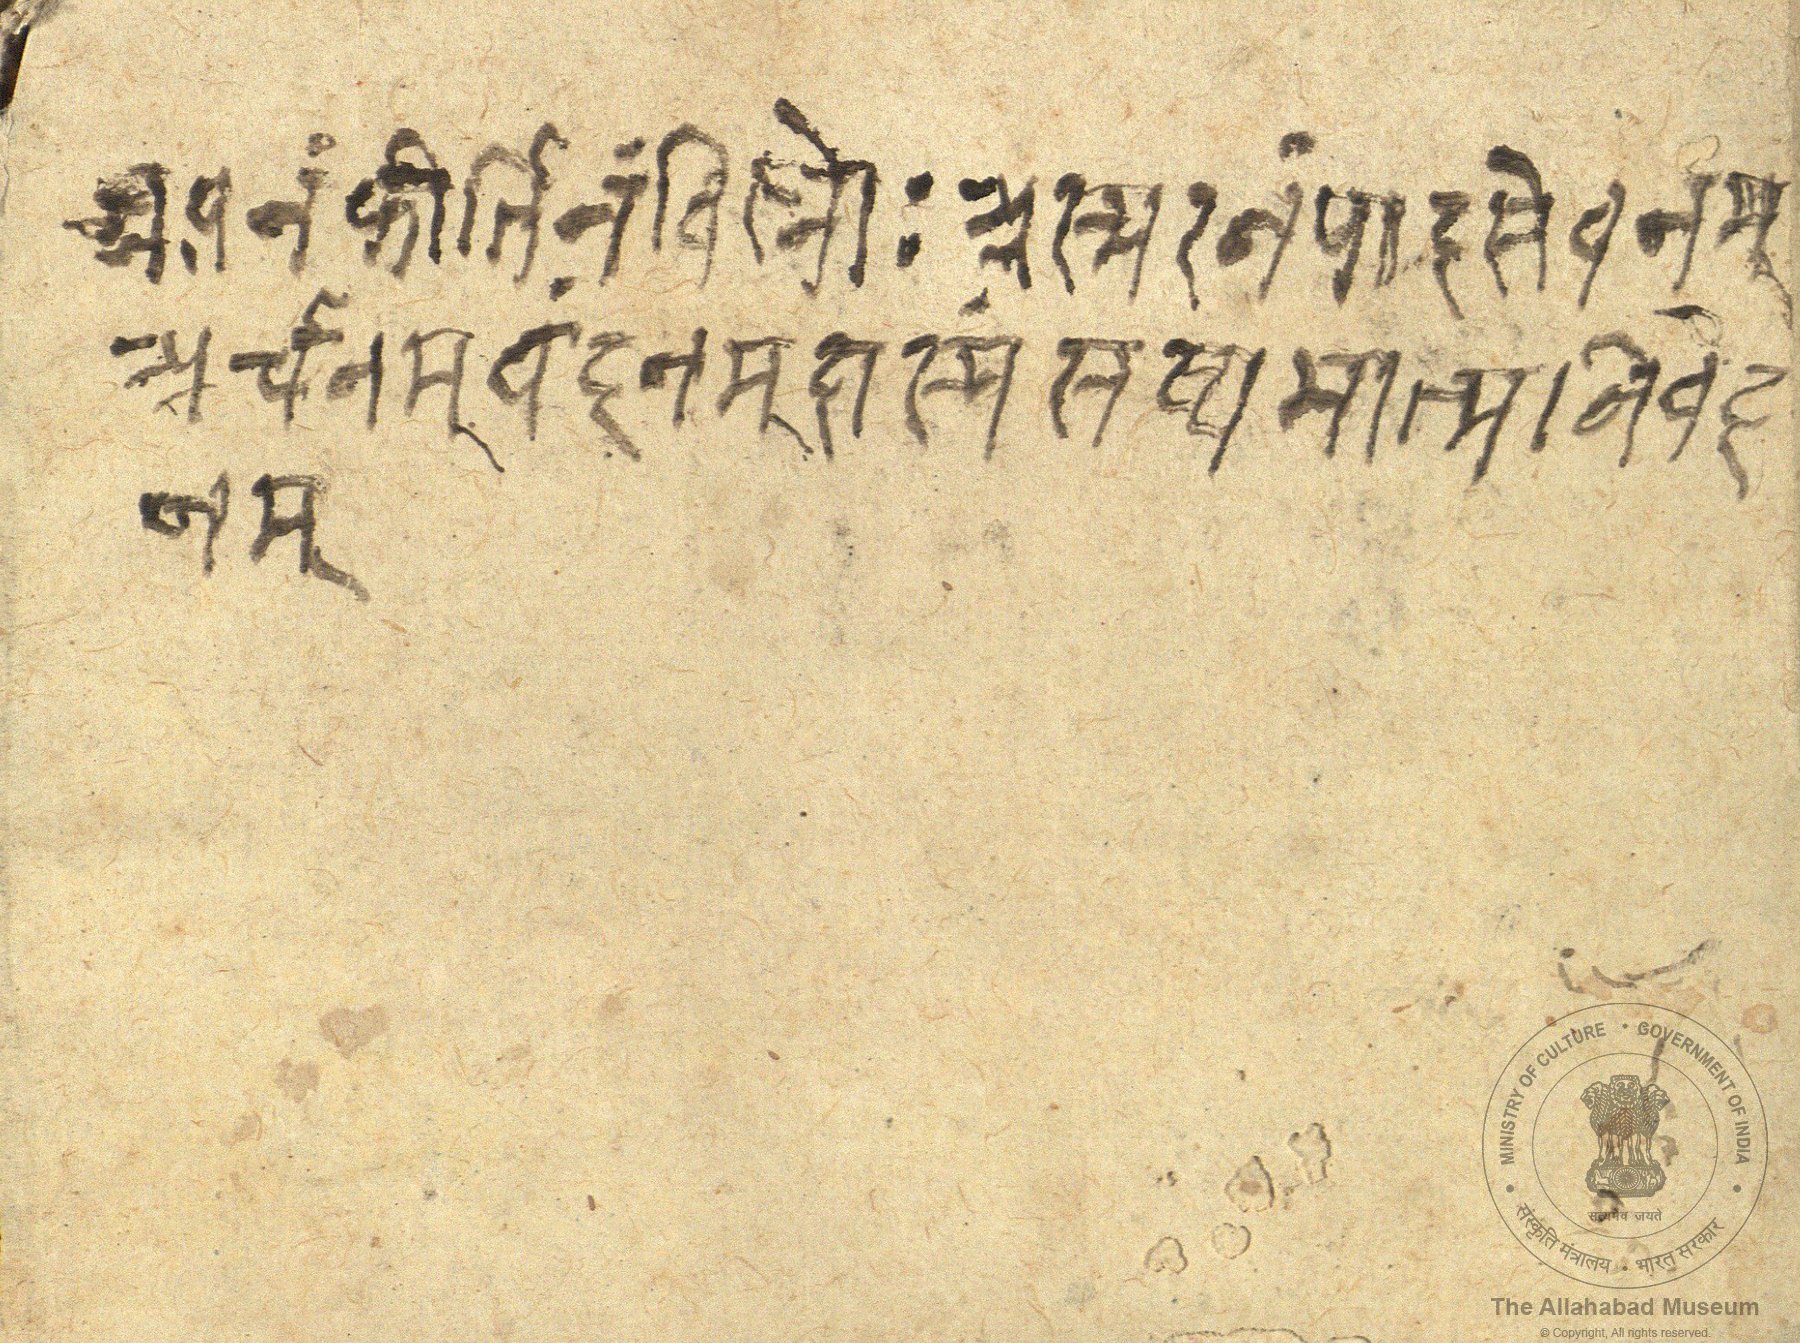 श्रवनं कीर्तिनं विस्नो: अस्मरनं पादसेवनम्
अर्चनम् वंदनम् दास्मं सख्यमात्मानिवेद
नम्
MINISTRY OF CULTURE • GOVERNMENT OF INDIA
सत्यमेव जयते
संस्कृति मंत्रालय • भारत सरकार
The Allahabad Museum
© Copyright, All rights reserved.